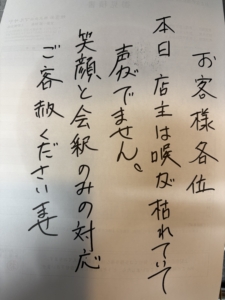 お客様各位
本日店主は喉が枯れていて
声がでません。
笑顔と会釈のみの対応
ご容赦くださいませ